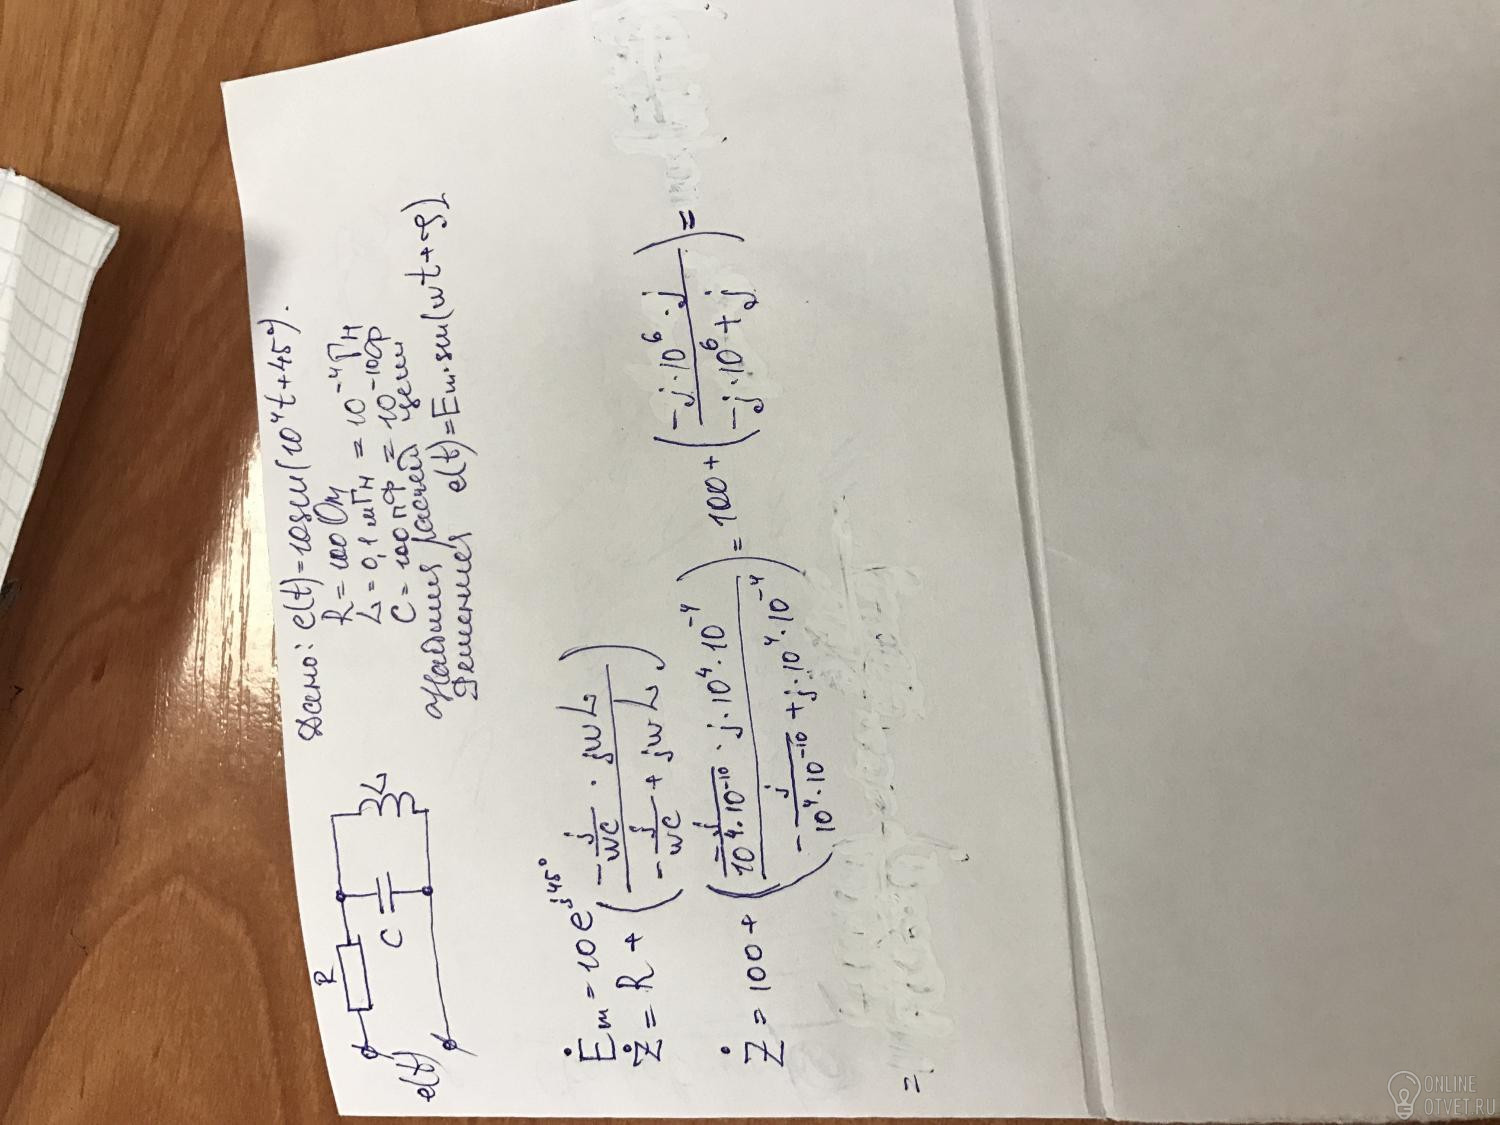 R
C
L
e(t)
Дано: e(t)=10sin(10⁴t+45°).
R=100 Ом
L=0,1 мГн = 10⁻⁴ Гн
C=100 пФ = 10⁻¹⁰ Ф
расчёт цепи
Решение e(t)=Em·sin(ωt+φ)
Ėm=10e^j45°
Ż=R+((-j/ωC · jωL)/(-j/ωC + jωL))
Ż=100+((-j/10⁴·10⁻¹⁰ · j·10⁴·10⁻⁴)/(-j/10⁴·10⁻¹⁰ + j·10⁴·10⁻⁴))=100+((-j·10⁶·j)/(-j·10⁶+j))=
=
ONLINE
OTVET.RU